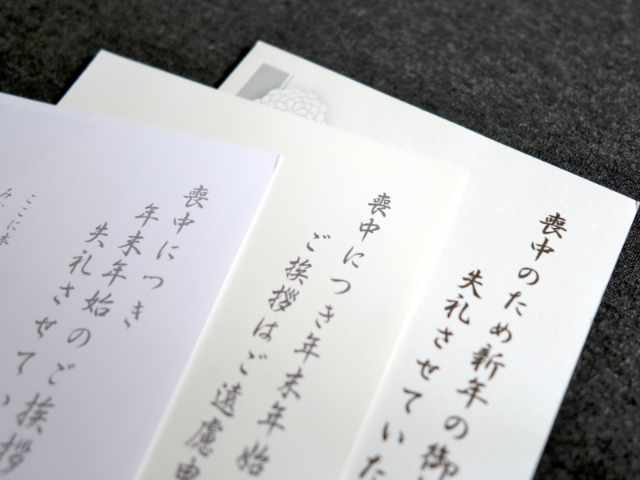 喪中のため新年の御
失礼させていた
喪中につき年末年始
ご挨拶はご遠慮申
喪中につき
年末年始のご挨拶
失礼させてい
ここに本